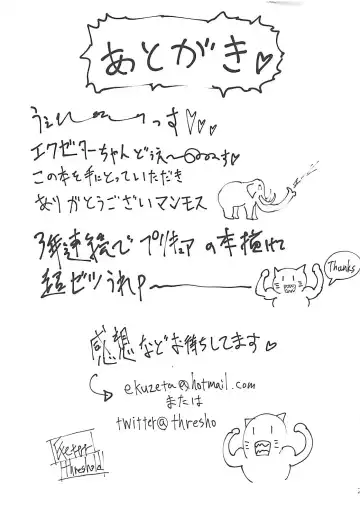 あとがき♡
うぇ〜〜〜っす♡♡♡
エクゼターちゃんどぅえ〜〜〜す♡
この本を手にとっていただき
ありがとうございマンモス
3年連続でプリキュアの本描けて
超ゼツうれP――
Thanks
感想などお待ちしてます♡
ekuzeta@hotmail.com
または
twitter@thresho
Exeter
threshold